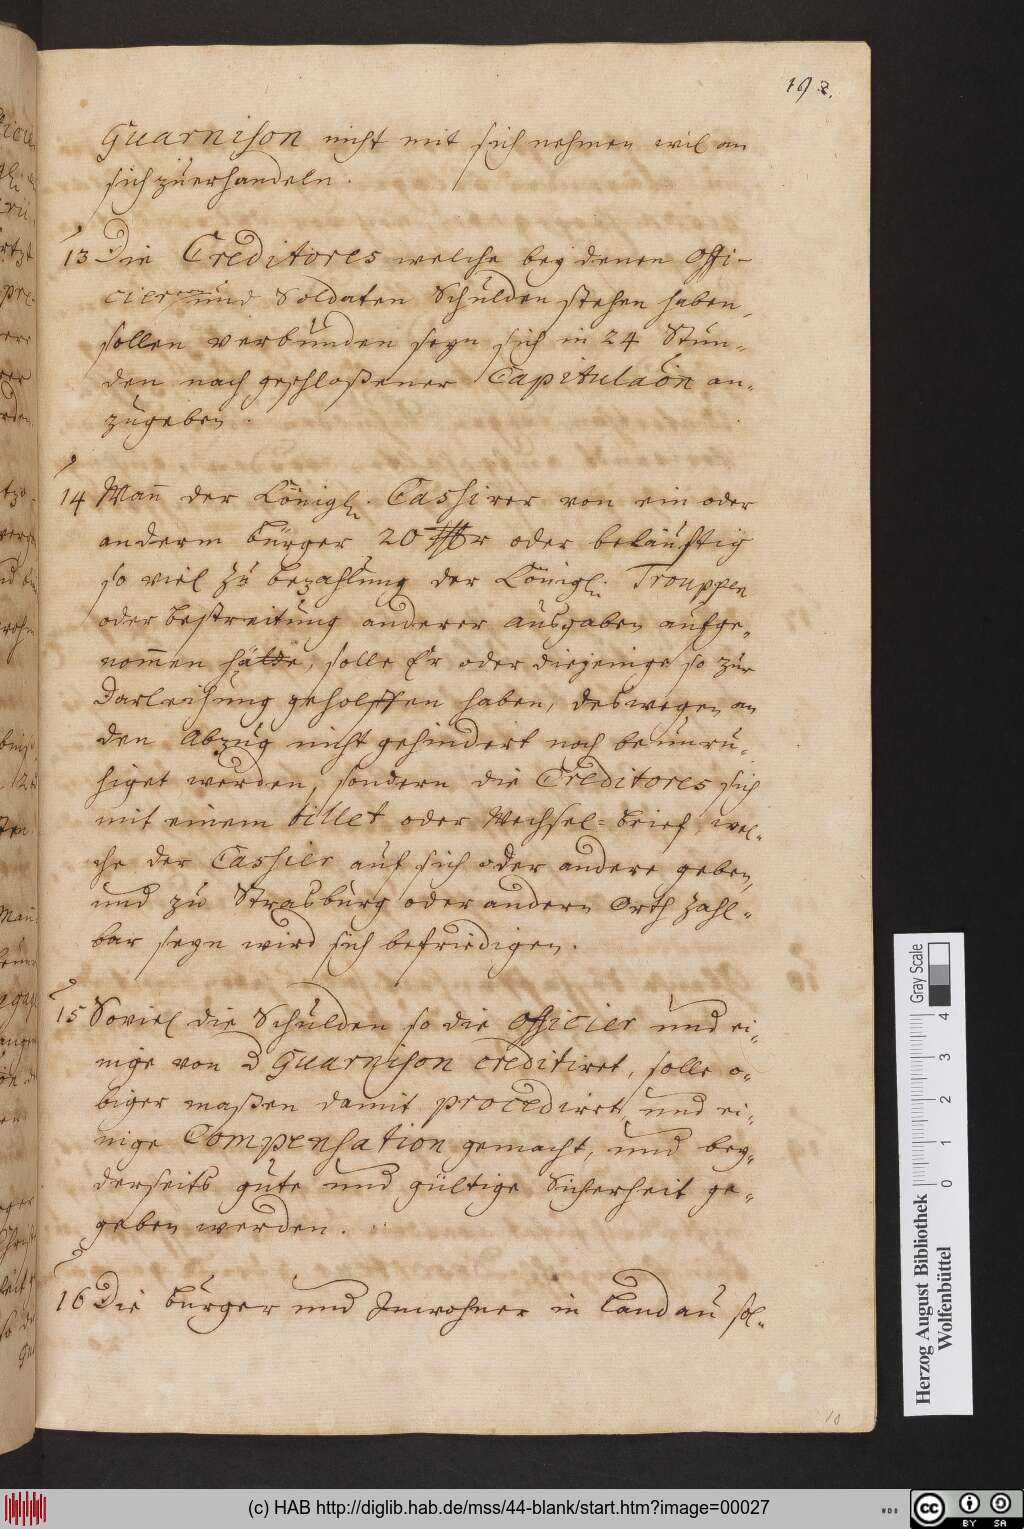 192.
Guarnison nicht mit sich nehmen wil an
sich zuerhandeln.
13 Die Creditores welche bey denen Offi-
cier und Soldaten Schulden stehen haben,
sollen verbunden seyn sich in 24 Stun-
den nach geschloßener Capitulaon an-
zugeben.
14 Wan der Königl. Cassirer von ein oder
anderm bürger 20 oder beläufftig
so viel zu bezahlung der Königl. Trouppen
oder bestreitung anderer ausgaben aufge-
nommen hätte, solle Er oder diejenige so zur
Darleihung geholffen haben, deswegen an
den Abzug nicht gehindert noch beunru-
higet werden, sondern die Creditores sich
mit einem billet oder Wechsel-brief, wel-
che der Cassier auf sich oder andere geben,
und zu Strasburg oder andern Orth zahl-
bar seyn wird sich befriedigen.
15 Soviel die Schulden so die Officier und ei-
nige von d Guarnison creditiret, solle o-
biger maßen damit procediret und ei-
nige Compensation gemacht, und bey-
derseits gute und gültige Sicherheit ge-
geben werden.
16 Die bürger und Inwohner in Landau sol-
10
Herzog August Bibliothek
Wolfenbüttel
Gray Scale
0 1 2 3 4
(c) HAB http://diglib.hab.de/mss/44-blank/start.htm?image=00027
WDB
cc BY SA